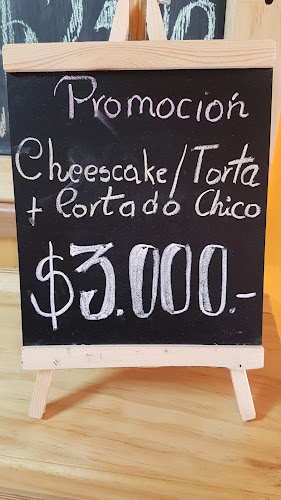 Promoción
Cheescake/Torta
+ Cortado Chico
$3.000.-